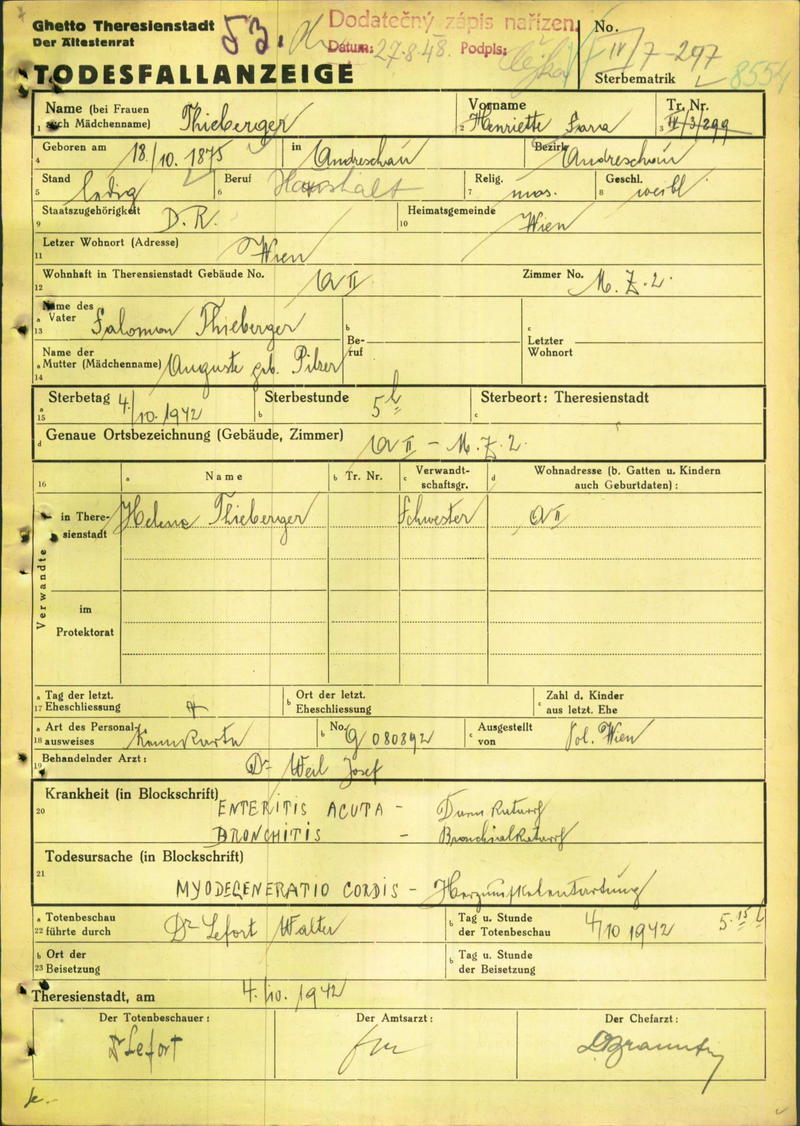 Ghetto Theresienstadt
Der Ältestenrat
Dodatečný zápis nařízen.
Datum: 27.8.48. Podpis:
No. IV/7-297
TODESFALLANZEIGE
Sterbematrik 8554
Name (bei Frauen auch Mädchenname) Thieberger
Vorname Henriette Sara
Tr. Nr. IV/3/299
Geboren am 18./10. 1875 in Andreschau Bezirk Andreschau
Stand ledig Beruf Haushalt Relig. mos. Geschl. weibl
Staatszugehörigkeit D.R. Heimatsgemeinde Wien
Letzer Wohnort (Adresse) Wien
Wohnhaft in Therensienstadt Gebäude No. Q VI Zimmer No. M.Z.2.
Name des Vater Salomon Thieberger
Beruf
Letzter Wohnort
Name der Mutter (Mädchenname) Auguste geb. Pilzer
Sterbetag 4./10. 1942 Sterbestunde 5 h Sterbeort: Theresienstadt
Genaue Ortsbezeichnung (Gebäude, Zimmer) Q VI - M.Z.2.
Name Tr. Nr. Verwandtschaftsgr. Wohnadresse (b. Gatten u. Kindern auch Geburtdaten) :
Verwandte
in Theresienstadt Helene Thieberger Schwester Q VI
im Protektorat
Tag der letzt. Eheschliessung Ort der letzt. Eheschliessung Zahl d. Kinder aus letzt. Ehe
Art des Personalausweises Kennkarte No. 080892 Ausgestellt von Pol. Wien
Behandelnder Arzt: Dr Weil Josef
Krankheit (in Blockschrift) ENTERITIS ACUTA - Darmkatarrh
BRONCHITIS - Bronchialkatarrh
Todesursache (in Blockschrift)
MYODEGENERATIO CORDIS - Herzmuskelentartung
Totenbeschau führte durch Dr Lefort Walter Tag u. Stunde der Totenbeschau 4/10 1942 5.15 h
Ort der Beisetzung Tag u. Stunde der Beisetzung
Theresienstadt, am 4./10. 1942
Der Totenbeschauer: Der Amtsarzt: Der Chefarzt:
Dr Lefort